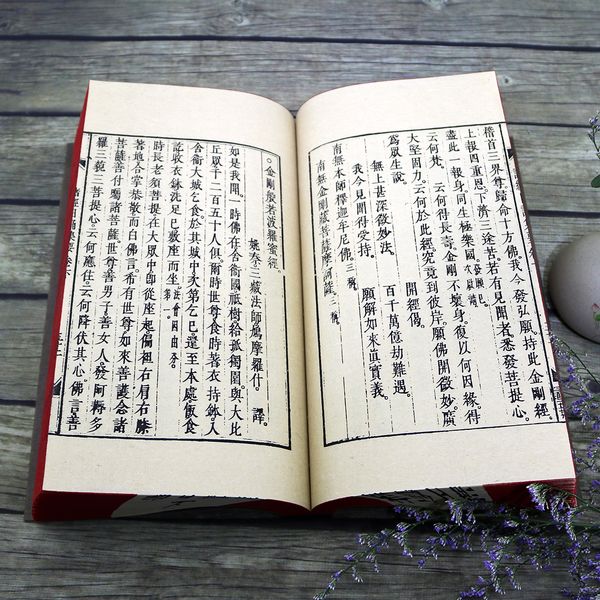 稽首三界尊歸命十方佛。我今發弘願。持此金剛經。
上報四重恩。下濟三途苦若有見聞者悉發菩提心。
盡此一報身同生極樂國。次發願已。
云何梵。云何得長壽金剛不壞身。復以何因緣。得
大堅固力。云何於此經究竟到彼岸。願佛開微妙。廣
爲眾生說。開經偈。
無上甚深微妙法。百千萬億劫難遇。
我今見聞得受持。願解如來眞實義。
南無本師釋迦牟尼佛。三稱。
南無金剛藏菩薩摩訶薩。三稱。
金剛般若波羅蜜經。
姚秦三藏法師鳩摩羅什。譯。
如是我聞。一時佛在舍衞國祇樹給孤獨園與大比
丘眾千二百五十人俱。爾時世尊食時著衣持鉢。入
舍衞大城乞食於其城中次第乞已還至本處飯食
訖收衣鉢洗足已敷座而坐。法會因由分。第一。
時長老須菩提在大眾中卽從座起偏袒右肩右膝
著地合掌恭敬而白佛言。希有世尊如來善護念諸
菩薩善付囑諸菩薩世尊善男子善女人。發阿耨多
羅三藐三菩提心。云何應住。云何降伏其心。佛言善